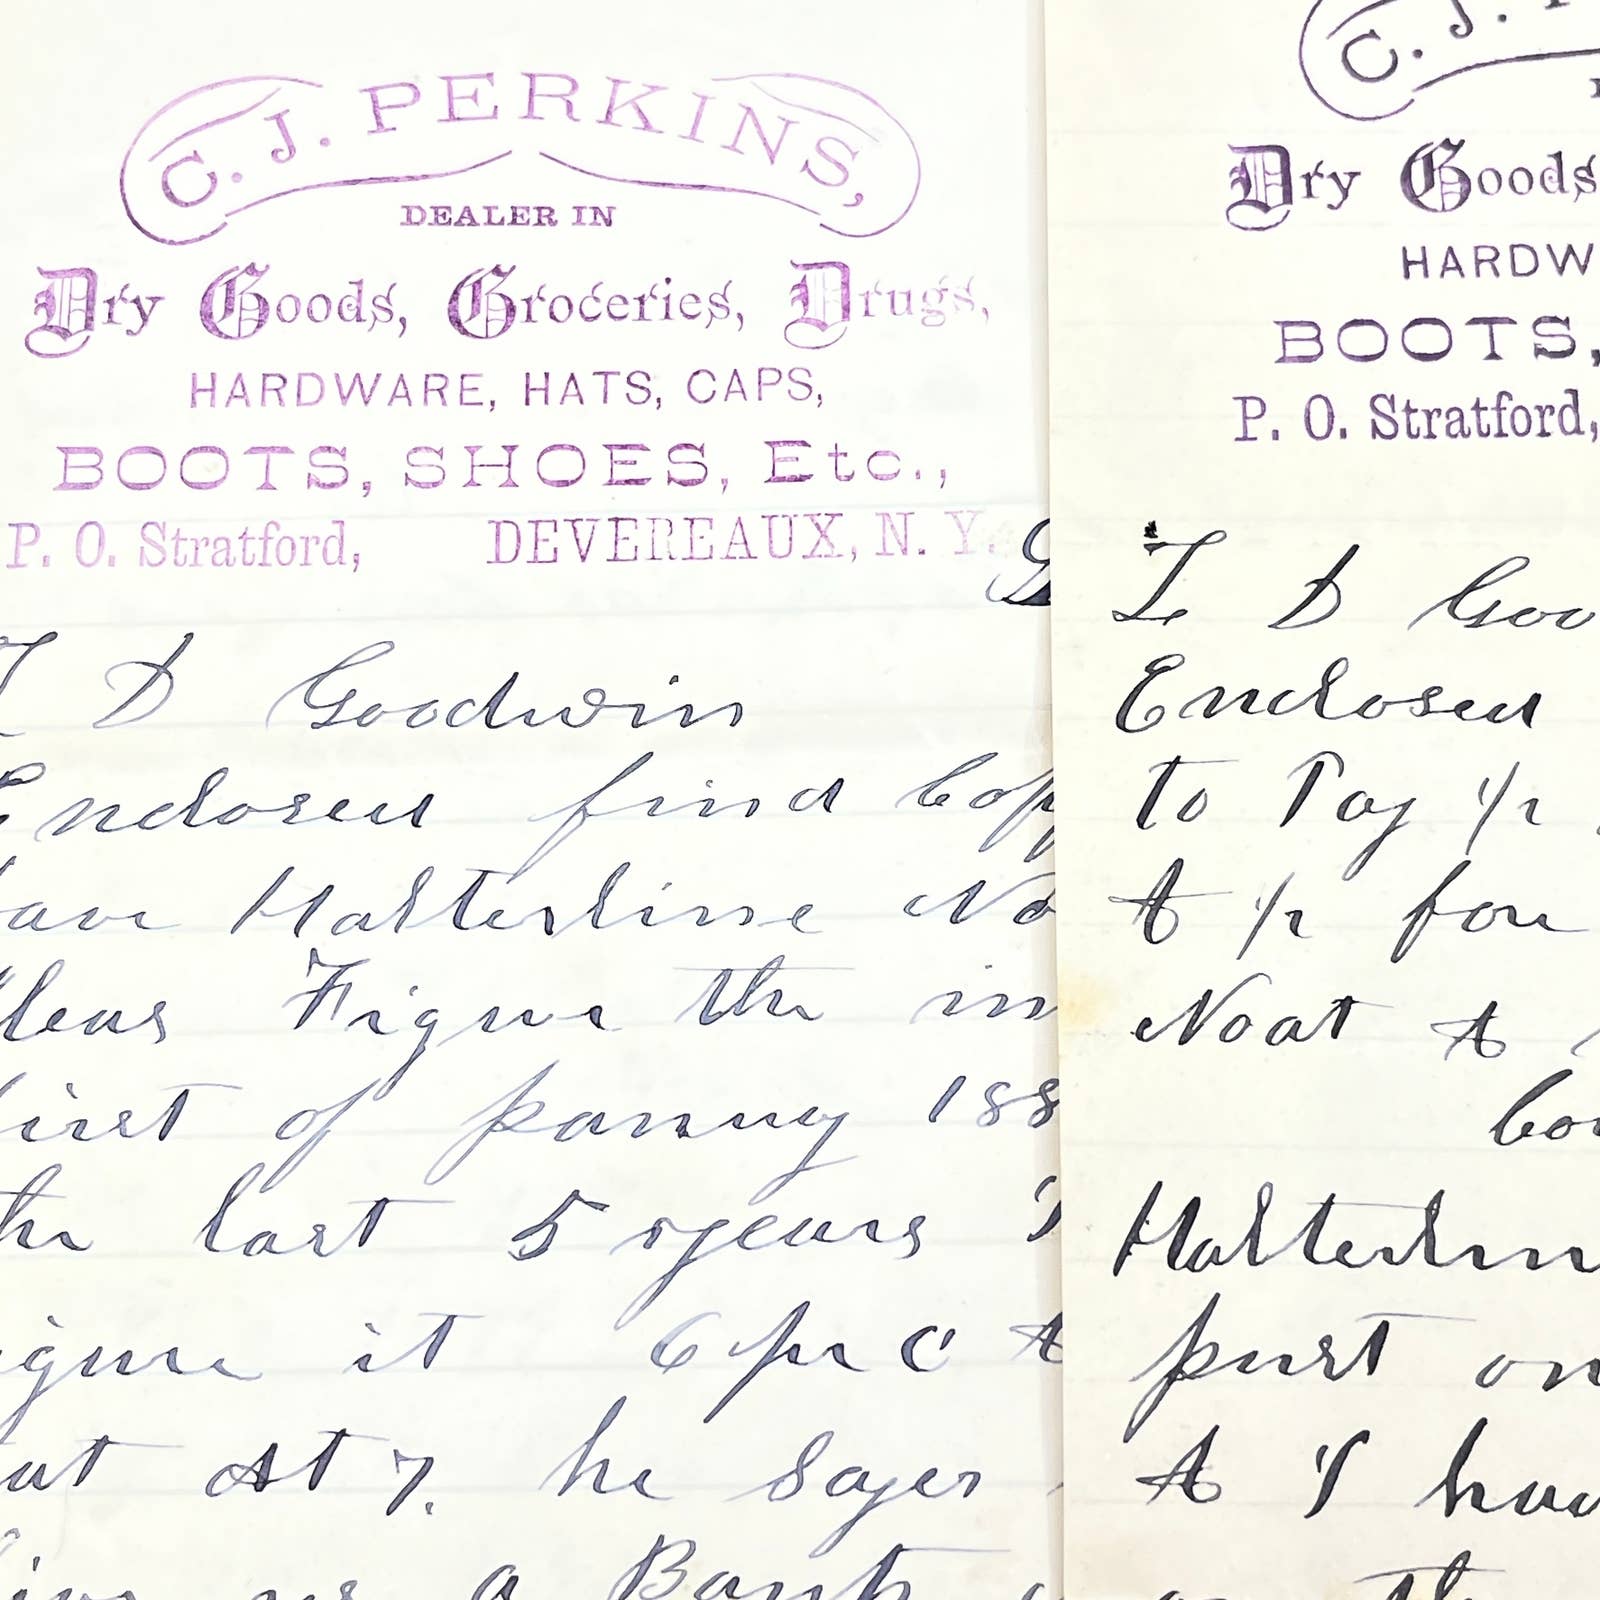 C. J. PERKINS,
DEALER IN
Dry Goods, Groceries, Drugs,
HARDWARE, HATS, CAPS,
BOOTS, SHOES, Etc.,
P. O. Stratford, DEVEREAUX, N. Y.
D Goodwin
Enclosed find Cop
Halterline No
Figure the in
first of January 188
the last 5 years
it 6 per C &
but At 7. he Sayes
us a Bank
C. J.
Dry Goods
HARDW
BOOTS,
P. O. Stratford,
L D Goo
Enclosed
to Pay 1/2
& 1/2 fou
Noat &
Halterlin
purst on
& I hav